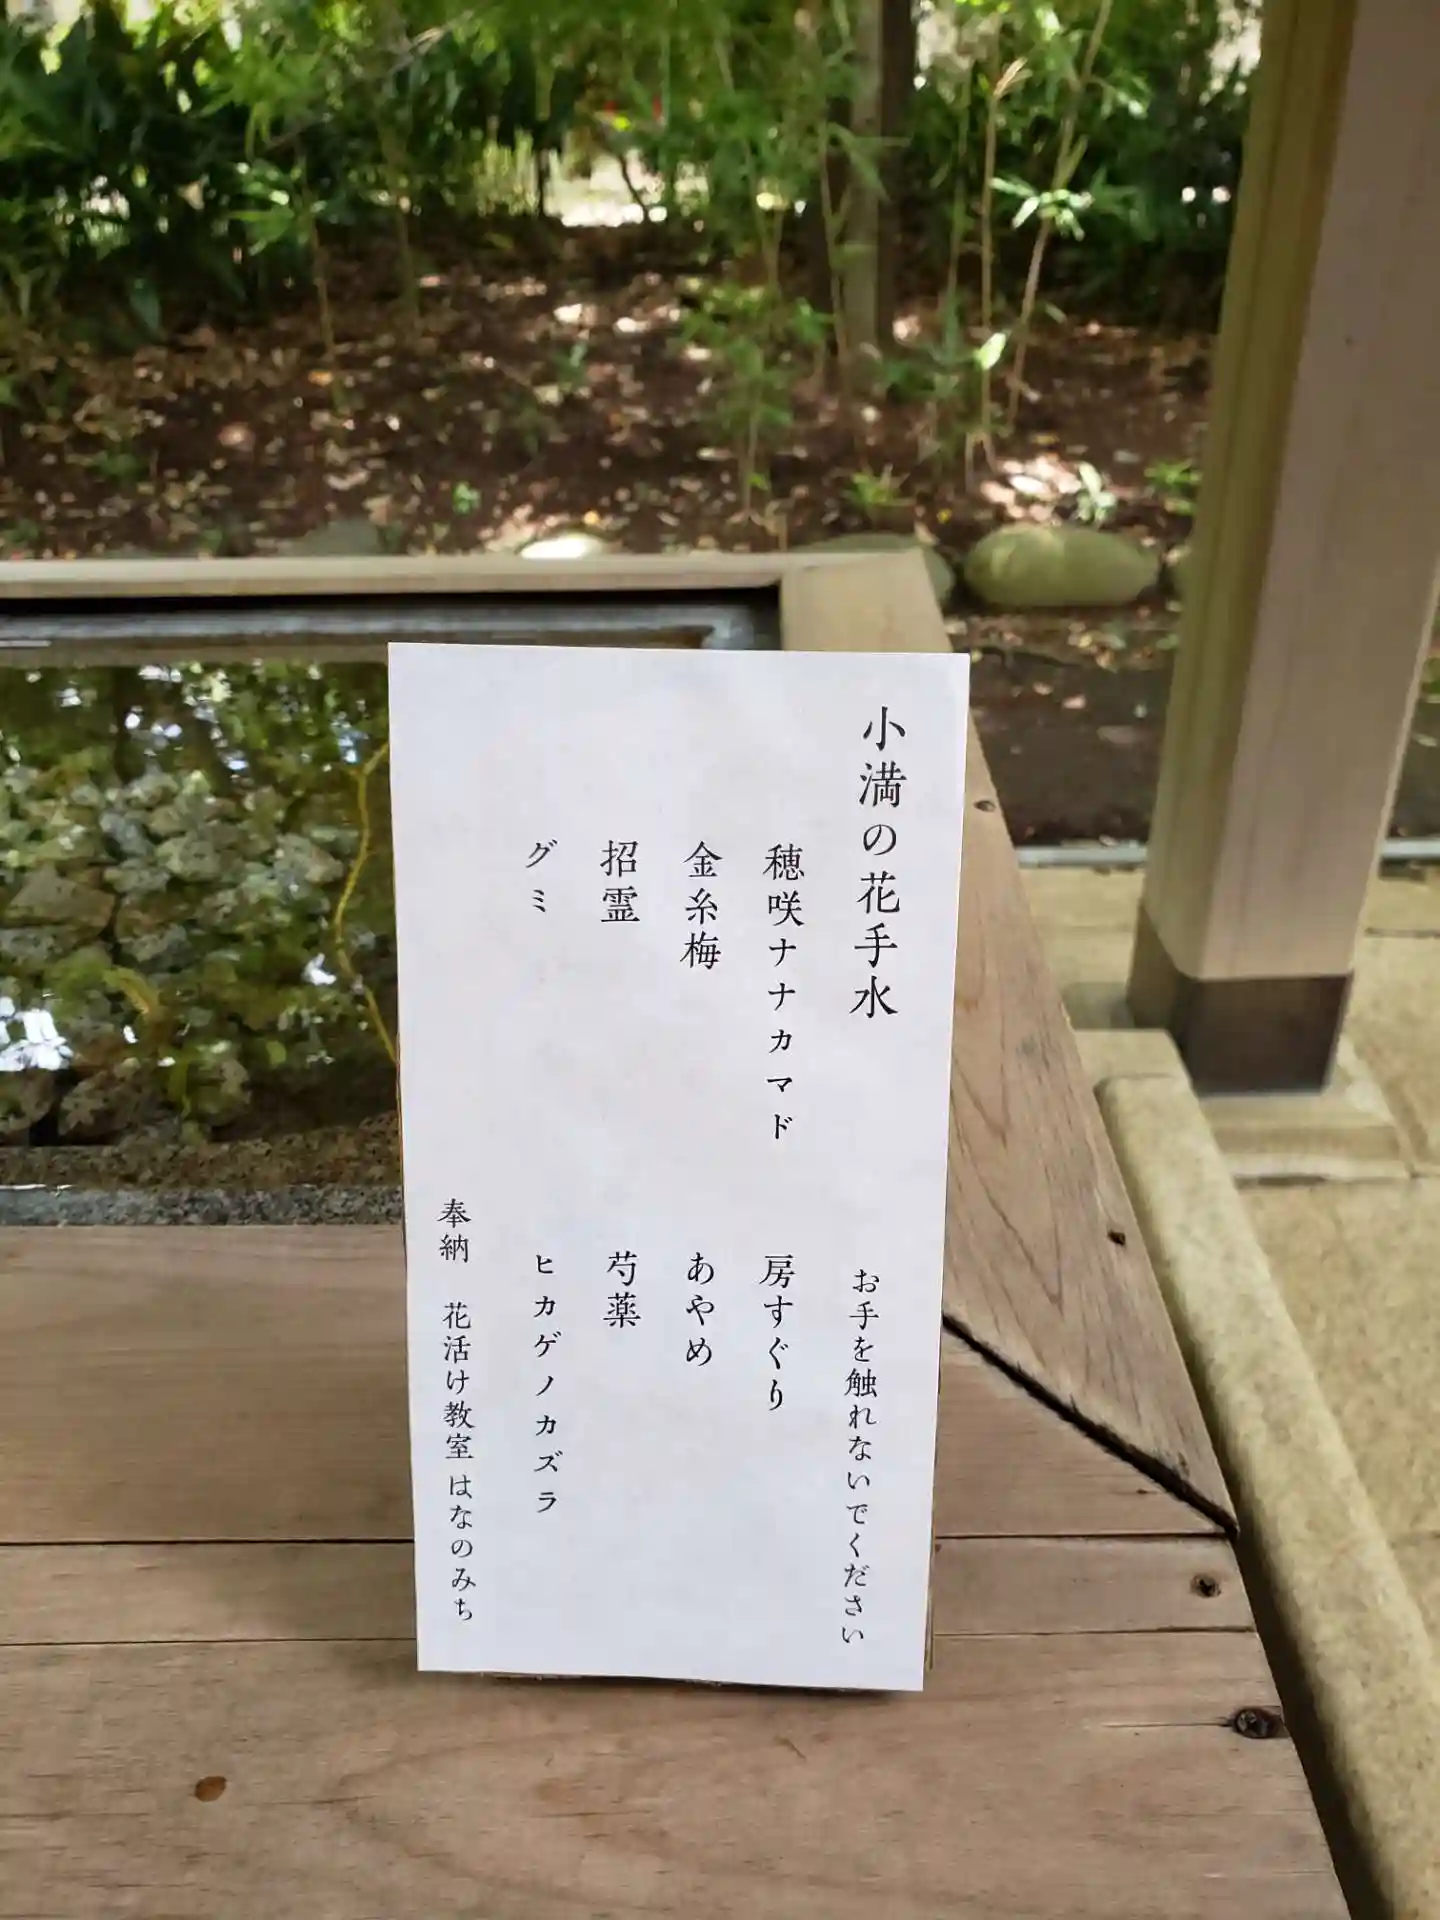 小満の花手水
お手を触れないでください
穂咲ナナカマド
房すぐり
金糸梅
あやめ
招霊
芍薬
グミ
ヒカゲノカズラ
奉納 花活け教室 はなのみち